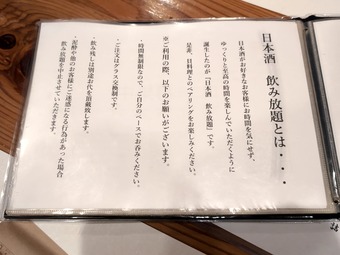 日本酒 飲み放題とは・・・
日本酒がお好きなお客様にお時間を気にせず、
ゆっくりと至高の時間を楽しんでいただくように
誕生したのが「日本酒 飲み放題」です。
是非、貝料理とのペアリングをお楽しみください。
※ご利用の際、以下お願いがございます。
・時間無制限なので、ご自分のペースでお呑みください。
・ご注文はグラス交換制です。
・飲み残しは別途お代を頂戴致します。
・泥酔や他のお客様にご迷惑になる行為があった場合
飲み放題を中止させていただきます。